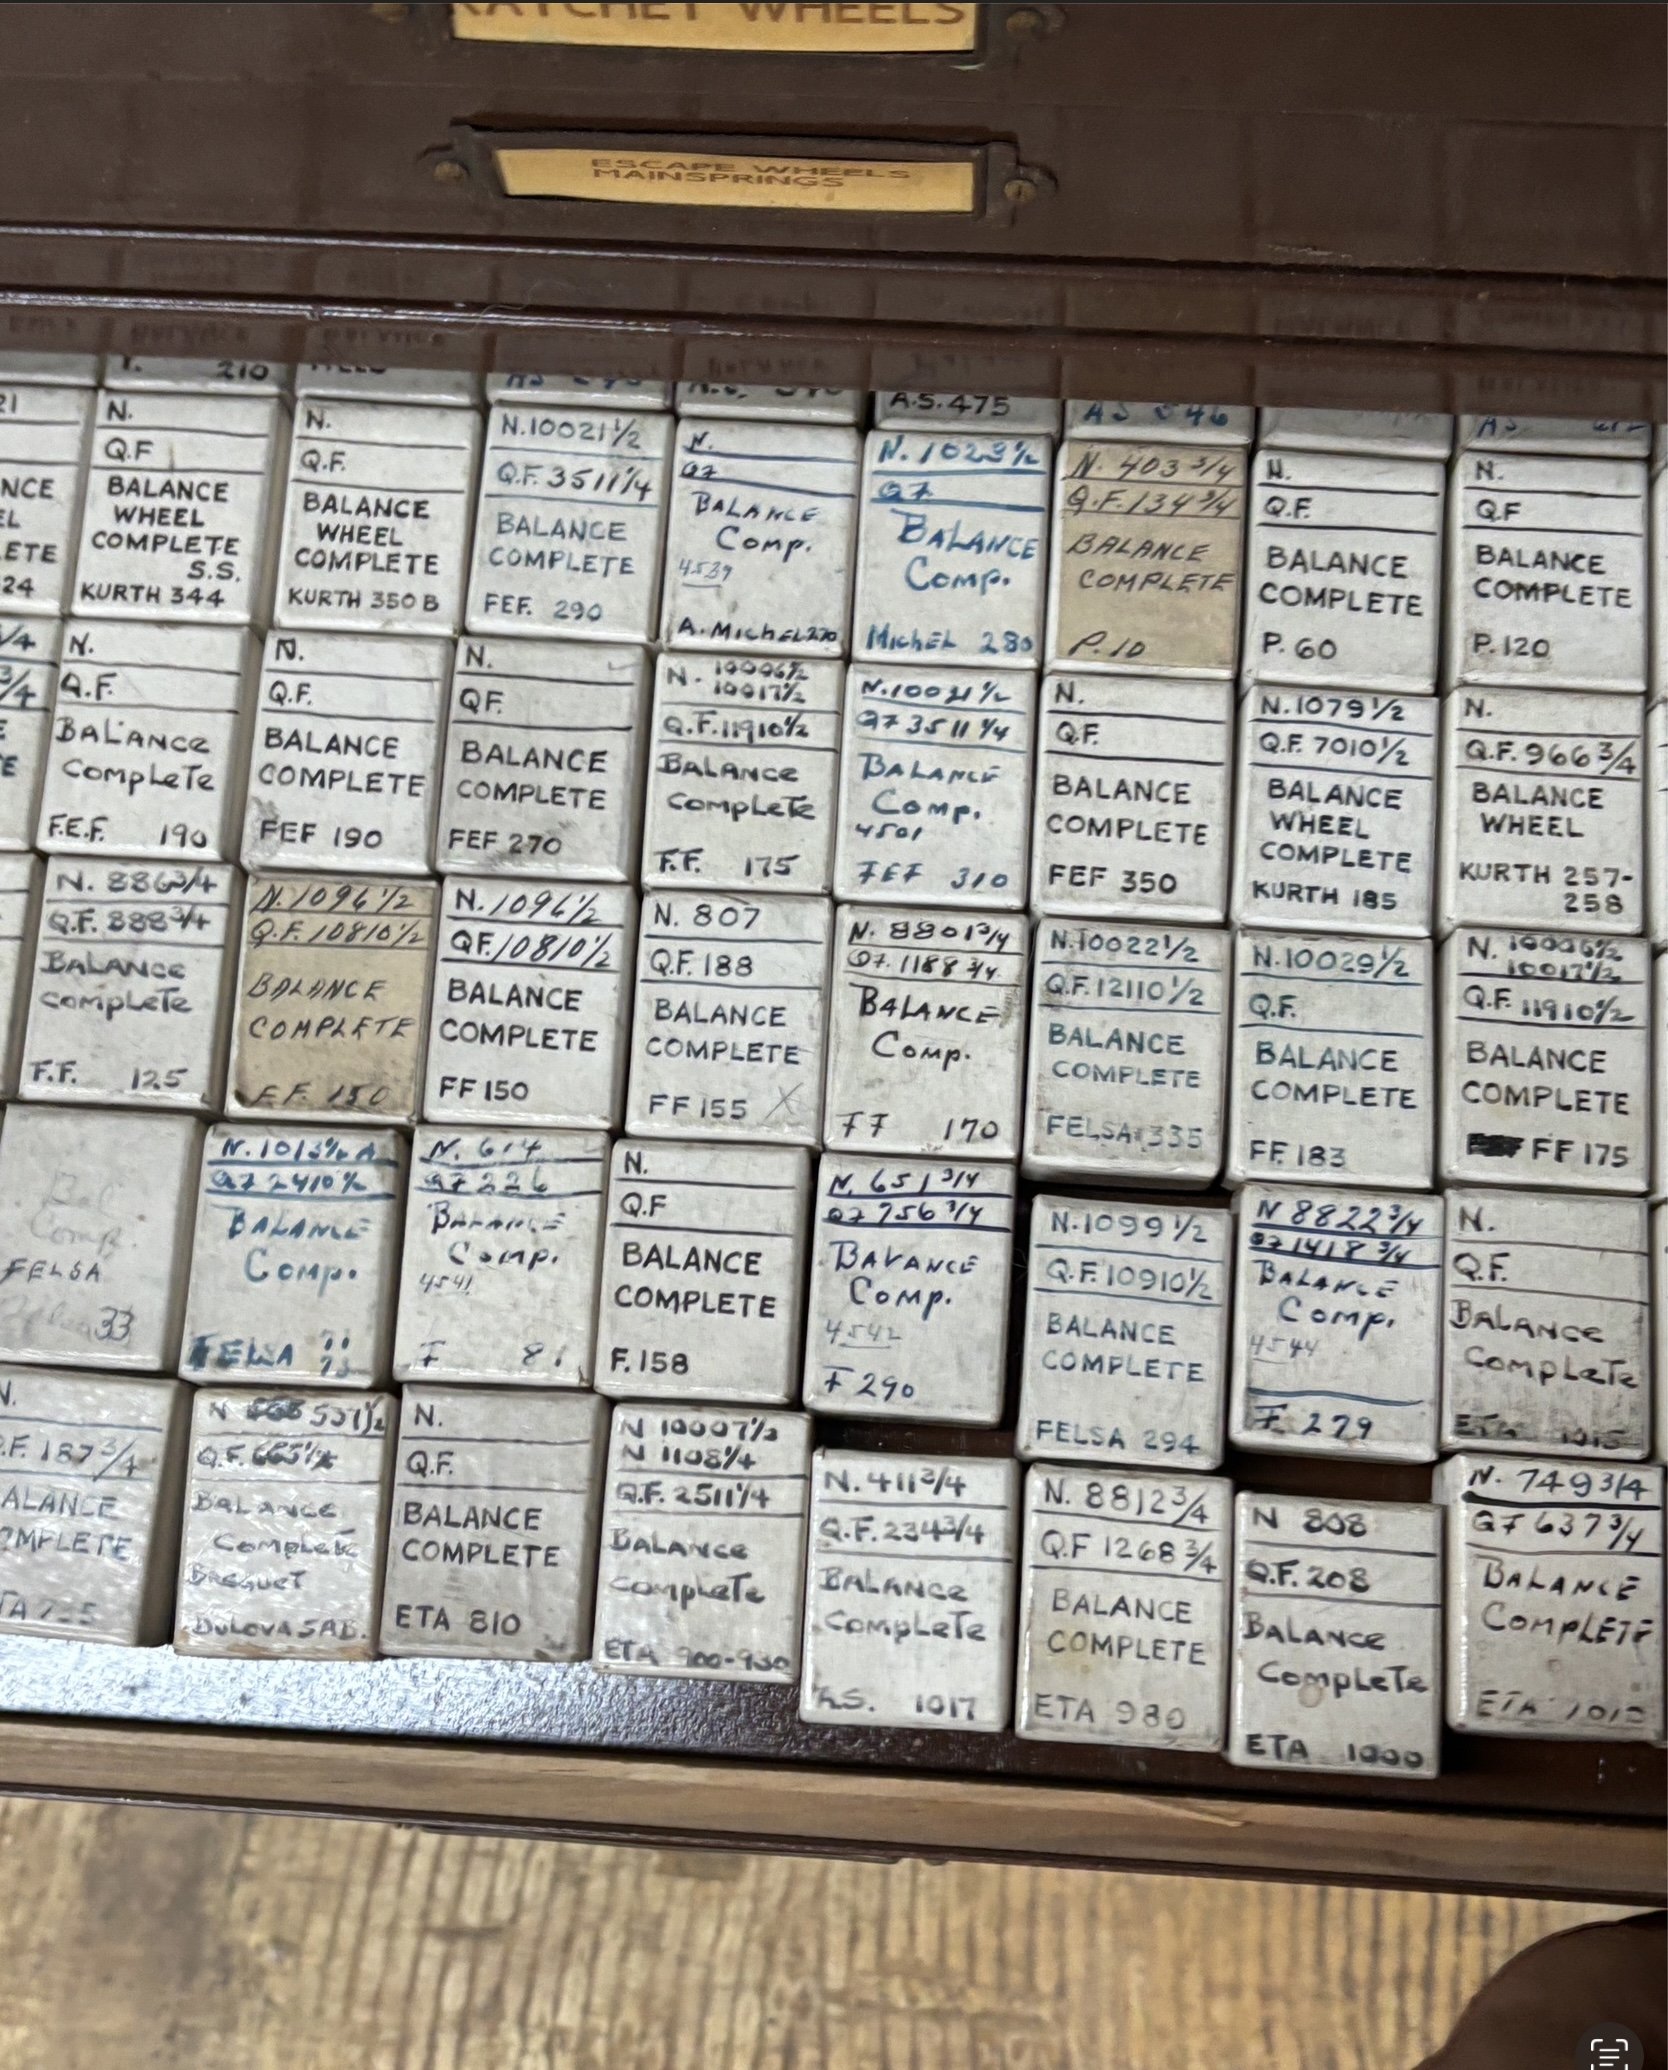 RATCHET WHEELS
ESCAPE WHEELS
MAINSPRINGS
210
A.S. 475
AS 546
21
NCE
EL
ETE
24
N.
Q.F
BALANCE
WHEEL
COMPLETE
S.S.
KURTH 344
N.
Q.F.
BALANCE
WHEEL
COMPLETE
KURTH 350 B
N.10021 1/2
Q.F. 3511 1/4
BALANCE
COMPLETE
FEF. 290
N.
QF
BALANCE
Comp.
4539
A. MICHEL 270
N. 1023 1/2
QF
BALANCE
Comp.
MICHEL 280
N. 403 3/4
Q.F. 134 3/4
BALANCE
COMPLETE
P. 10
N.
Q.F.
BALANCE
COMPLETE
P. 60
N.
QF
BALANCE
COMPLETE
P. 120
N.
Q.F.
BALANCE
Complete
F.E.F. 190
N.
Q.F.
BALANCE
COMPLETE
FEF 190
N.
QF.
BALANCE
COMPLETE
FEF 270
N. 10006 1/2
10017 1/2
Q.F. 11910 1/2
BALANCE
Complete
F.F. 175
N.10021 1/2
QF 3511 1/4
BALANCE
Comp.
4501
FEF 310
N.
QF.
BALANCE
COMPLETE
FEF 350
N. 1079 1/2
Q.F. 7010 1/2
BALANCE
WHEEL
COMPLETE
KURTH 185
N.
Q.F. 966 3/4
BALANCE
WHEEL
KURTH 257-
258
N. 886 3/4
Q.F. 888 3/4
BALANCE
Complete
F.F. 125
N. 1096 1/2
Q.F. 10810 1/2
BALANCE
COMPLETE
F.F. 150
N. 1096 1/2
QF. 10810 1/2
BALANCE
COMPLETE
FF 150
N. 807
Q.F. 188
BALANCE
COMPLETE
FF 155 X
N. 8801 3/4
QF. 1188 3/4
BALANCE
Comp.
FF 170
N.10022 1/2
Q.F. 12110 1/2
BALANCE
COMPLETE
FELSA 335
N.10029 1/2
Q.F.
BALANCE
COMPLETE
FF. 183
N. 10006 1/2
10017 1/2
Q.F. 11910 1/2
BALANCE
COMPLETE
FF 175
Bal
Comp.
FELSA
33
N. 1013 1/2 A
QF 2410 1/2
BALANCE
Comp.
FELSA
N. 614
QF 226
BALANCE
Comp.
4541
F 81
N.
Q.F
BALANCE
COMPLETE
F. 158
N. 651 3/4
QF 756 3/4
BALANCE
Comp.
4542
F 290
N. 1099 1/2
Q.F. 10910 1/2
BALANCE
COMPLETE
FELSA 294
N 8822 3/4
QF 1418 3/4
BALANCE
Comp.
4544
F. 279
N.
Q.F.
BALANCE
Complete
ETA 1015
N.
Q.F. 187 3/4
ALANCE
OMPLETE
N 551 1/2
Q.F.
BALANCE
Complete
Breguet
BULOVA 5AB.
N.
Q.F.
BALANCE
COMPLETE
ETA 810
N 10007 1/2
N 1108 1/4
Q.F. 2511 1/4
BALANCE
Complete
ETA 900-930
N. 411 3/4
Q.F. 234 3/4
BALANCE
Complete
A.S. 1017
N. 8812 3/4
QF 1268 3/4
BALANCE
COMPLETE
ETA 980
N 808
Q.F. 208
BALANCE
Complete
ETA 1000
N. 749 3/4
QF 637 3/4
BALANCE
COMPLETE
ETA